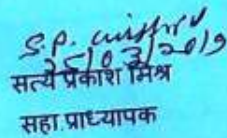 S.P. Mishra
25/03/2019
सत्य प्रकाश मिश्र
सहा.प्राध्यापक